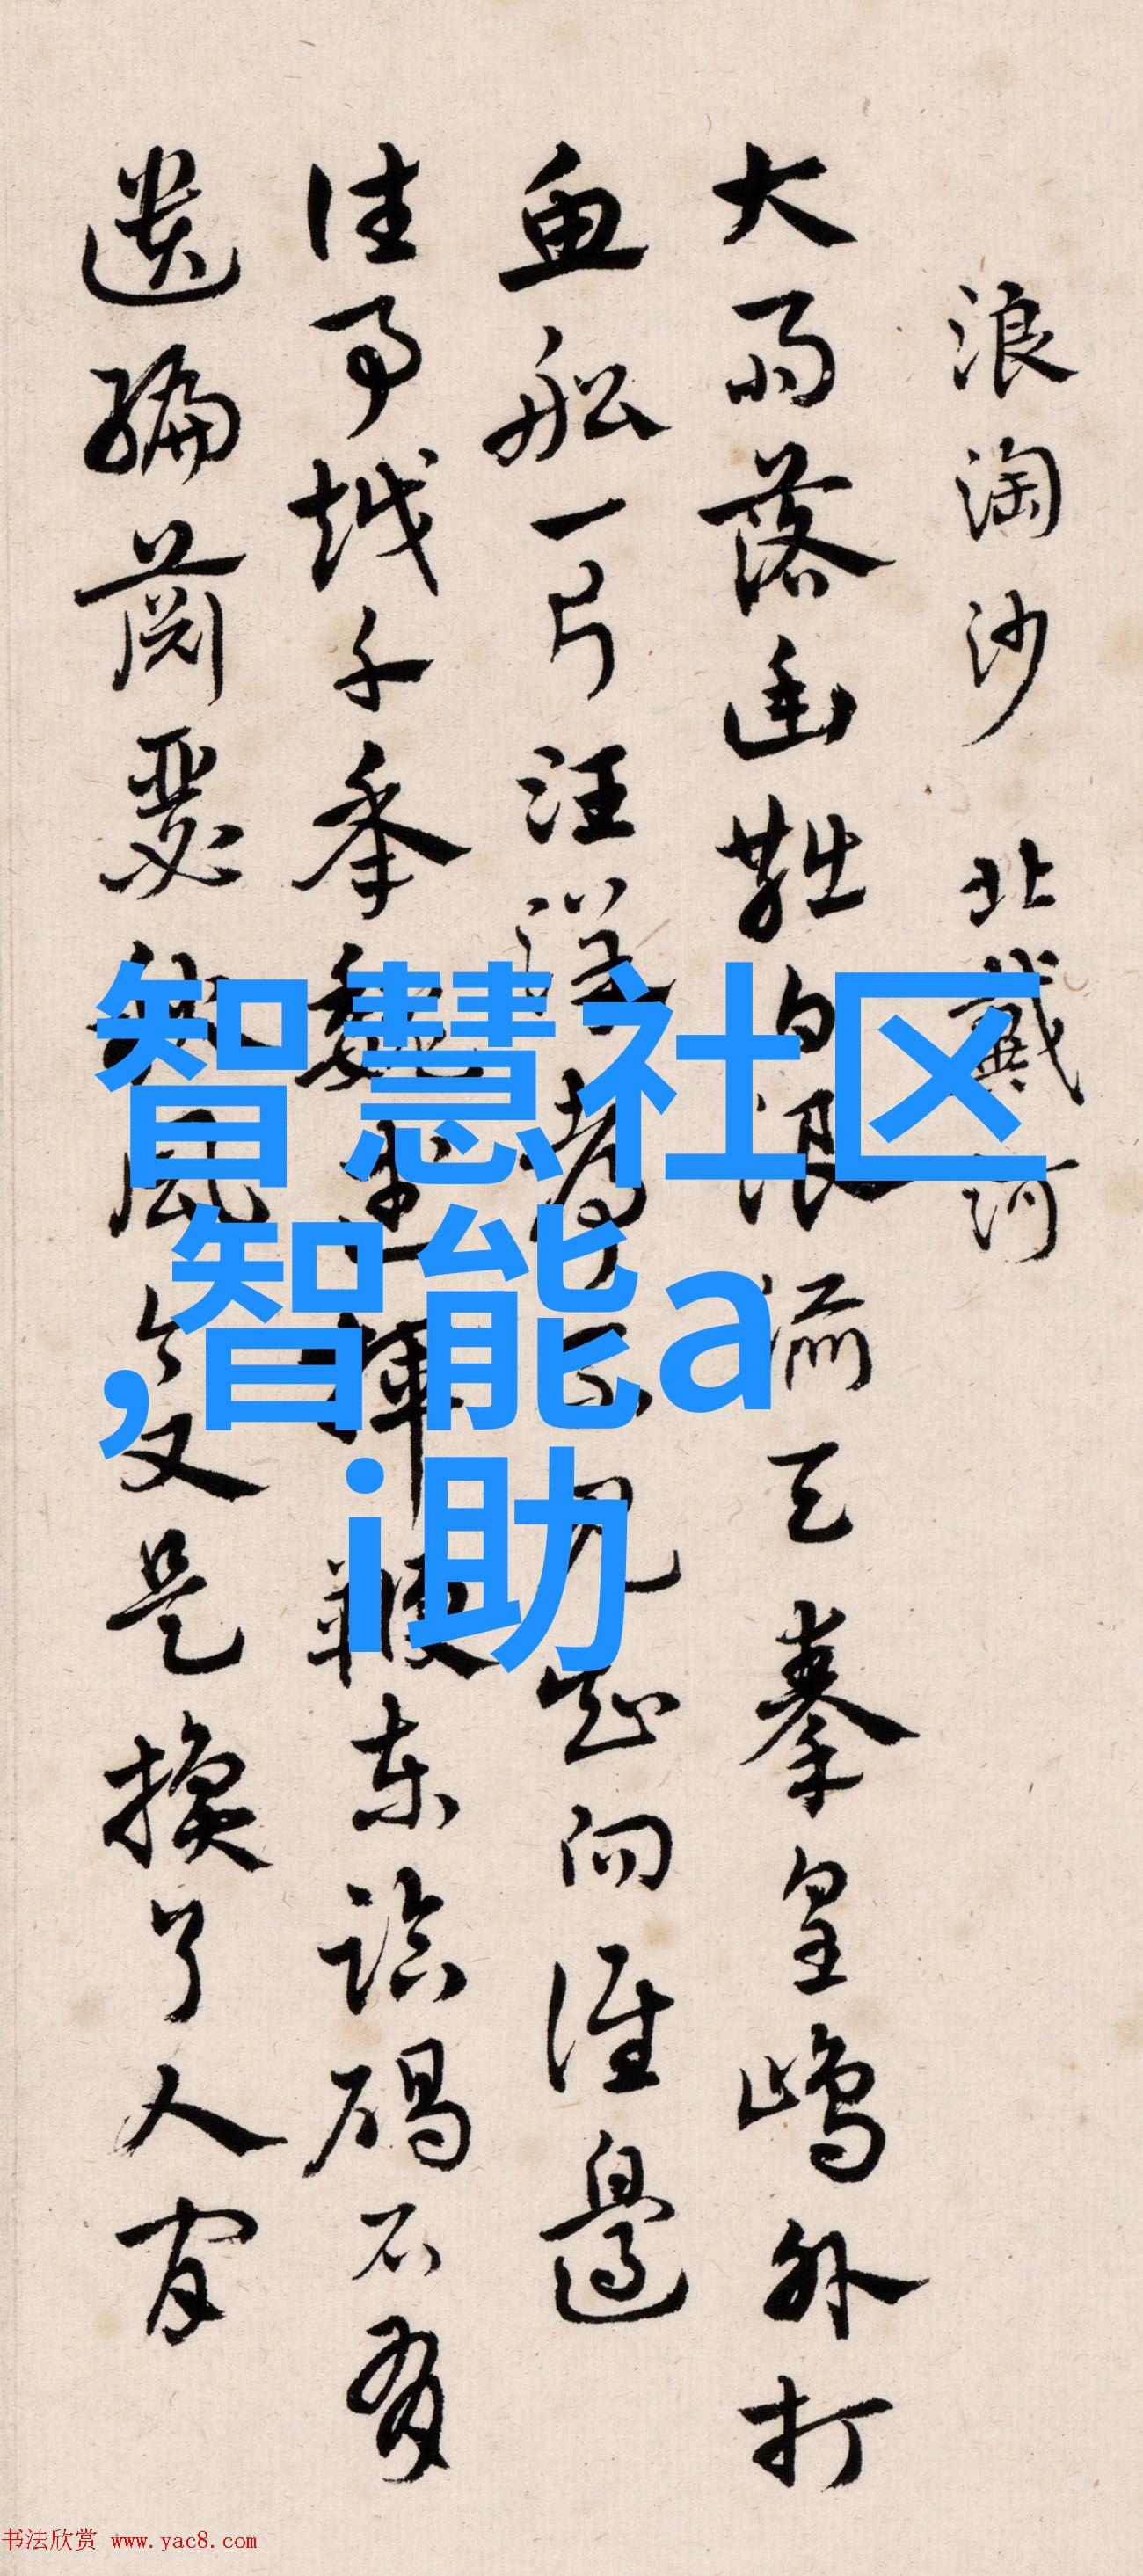 浪淘沙 北戴河
大雨落幽燕白浪滔天秦皇島外打
魚船一片汪洋都不見知向誰邊
往事越千秊魏武揮鞭東臨碣石有
遺編蕭瑟秋風今又是換了人間
智慧社区
,智能a
i助
书法欣赏 www.yac8.com